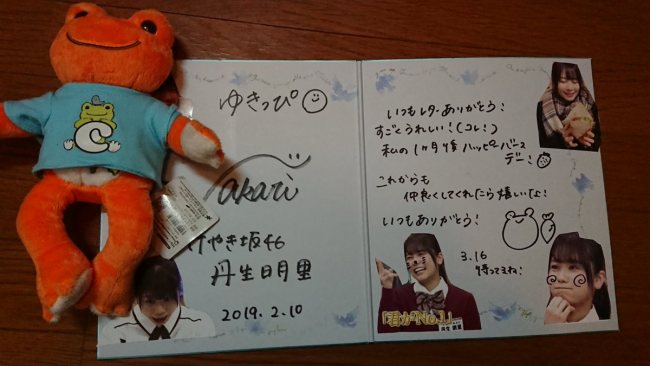 ゆきっぴ
Akari
けやき坂46
丹生明里
2019.2.10
C
いつもレターありがとう!
すごくうれしい!(コレ!)
私の1ヶ月後ハッピーバース
デー!
これからも
仲良くしてくれたら嬉しいよ!
いつもありがとう!
3.16
待ってるね!
「君がNo.1」
丹生 明里